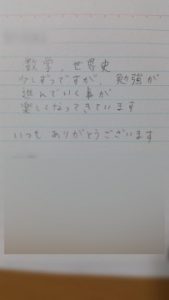 数学、世界史
少しずつですが、勉強が
進んでいく事が
楽しくなってきています
いつも ありがとうございます